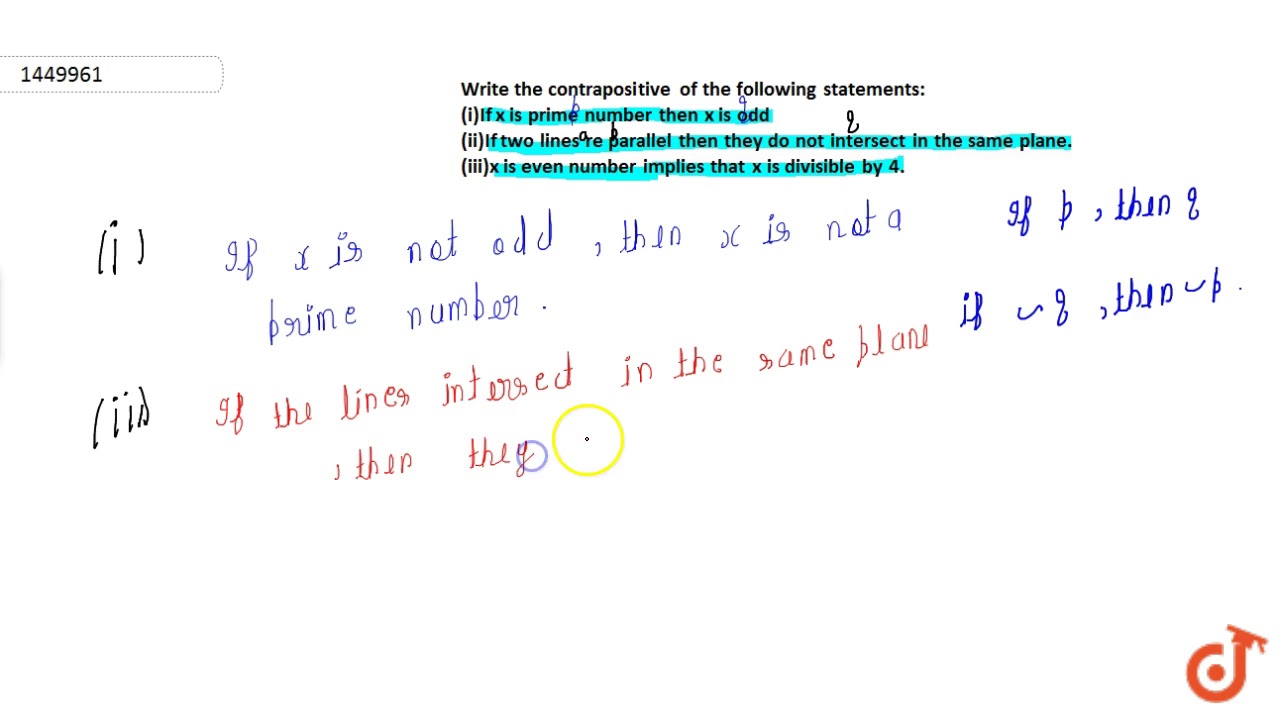 1449961
Write the contrapositive of the following statements:
p q
(i)If x is prime number then x is odd
a p q
(ii)If two lines re parallel then they do not intersect in the same plane.
(iii)x is even number implies that x is divisible by 4.
(i) If x is not odd , then x is not a
prime number .
If p , then q
if ~q , then ~p .
(ii) If the lines intersect in the same plane
, then they